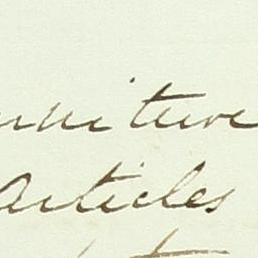 urniture
Articles